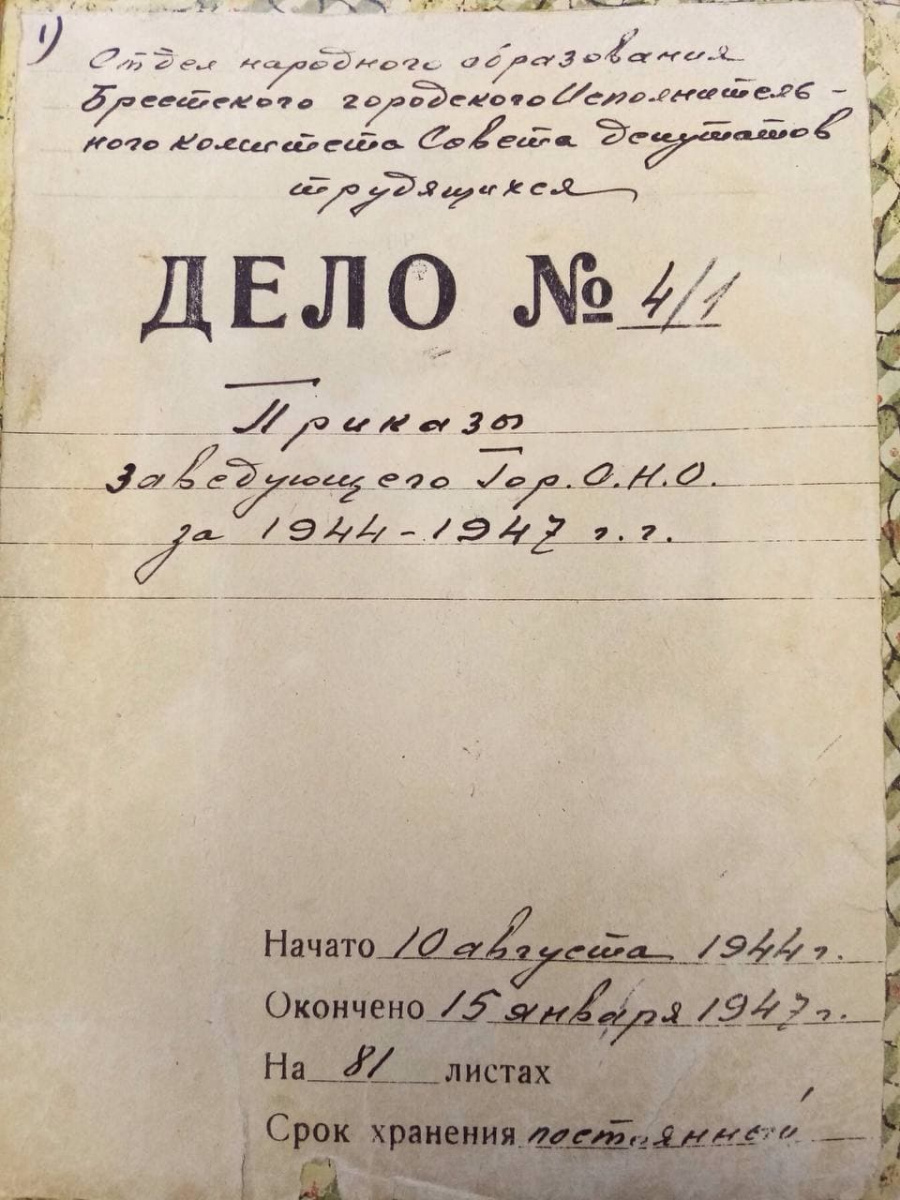 1)
Отдел народного образования
Брестского городского Исполнитель-
ного комитета Совета депутатов
трудящихся
ДЕЛО № 4/1
Приказы
заведующего Гор. О.Н.О.
за 1944-1947 г.г.
Начато 10 августа 1944 г.
Окончено 15 января 1947 г.
На 81 листах
Срок хранения постоянный